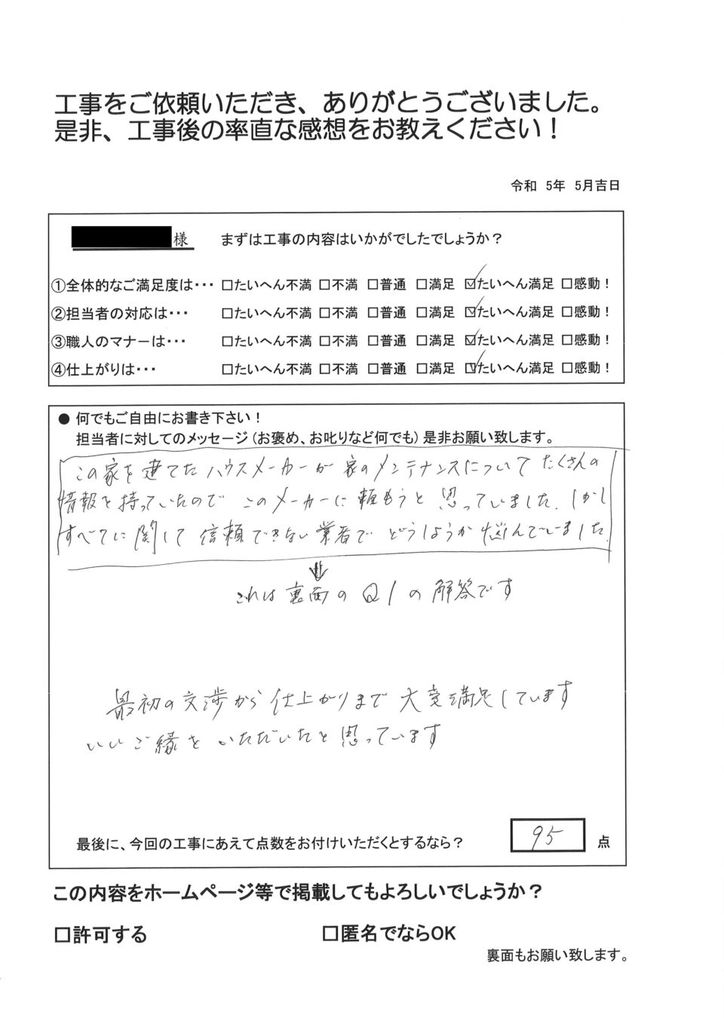 工事をご依頼いただき、ありがとうございました。
是非、工事後の率直な感想をお教えください！
令和 5年 5月吉日
様 まずは工事の内容はいかがでしたでしょうか？
①全体的なご満足度は・・・ □たいへん不満 □不満 □普通 □満足 ☑たいへん満足 □感動！
②担当者の対応は・・・ □たいへん不満 □不満 □普通 □満足 ☑たいへん満足 □感動！
③職人のマナーは・・・ □たいへん不満 □不満 □普通 □満足 ☑たいへん満足 □感動！
④仕上がりは・・・ □たいへん不満 □不満 □普通 □満足 ☑たいへん満足 □感動！
● 何でもご自由にお書き下さい！
担当者に対してのメッセージ（お褒め、お叱りなど何でも）是非お願い致します。
この家を建てたハウスメーカーが家のメンテナンスについてたくさんの
情報を持っていたのでこのメーカーに頼もうと思っていました。しかし
すべてに関して信頼できない業者でどうしようか悩んでいました。
これは裏面のQ1の解答です
最初の交渉から仕上がりまで大変満足しています
いいご縁をいただいたと思っています
最後に、今回の工事にあえて点数をお付けいただくとするなら？ 95 点
この内容をホームページ等で掲載してもよろしいでしょうか？
□許可する □匿名でならOK
裏面もお願い致します。